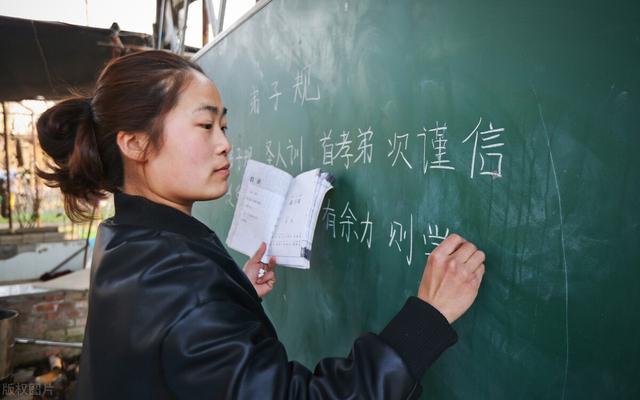 弟子规
规 圣人训 首孝弟 次谨信
有余力 则学
版权图片